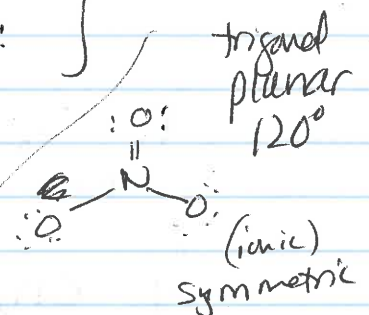 trigonal
planar
120°
:O:
||
N
:O: O:
(ionic)
symmetric